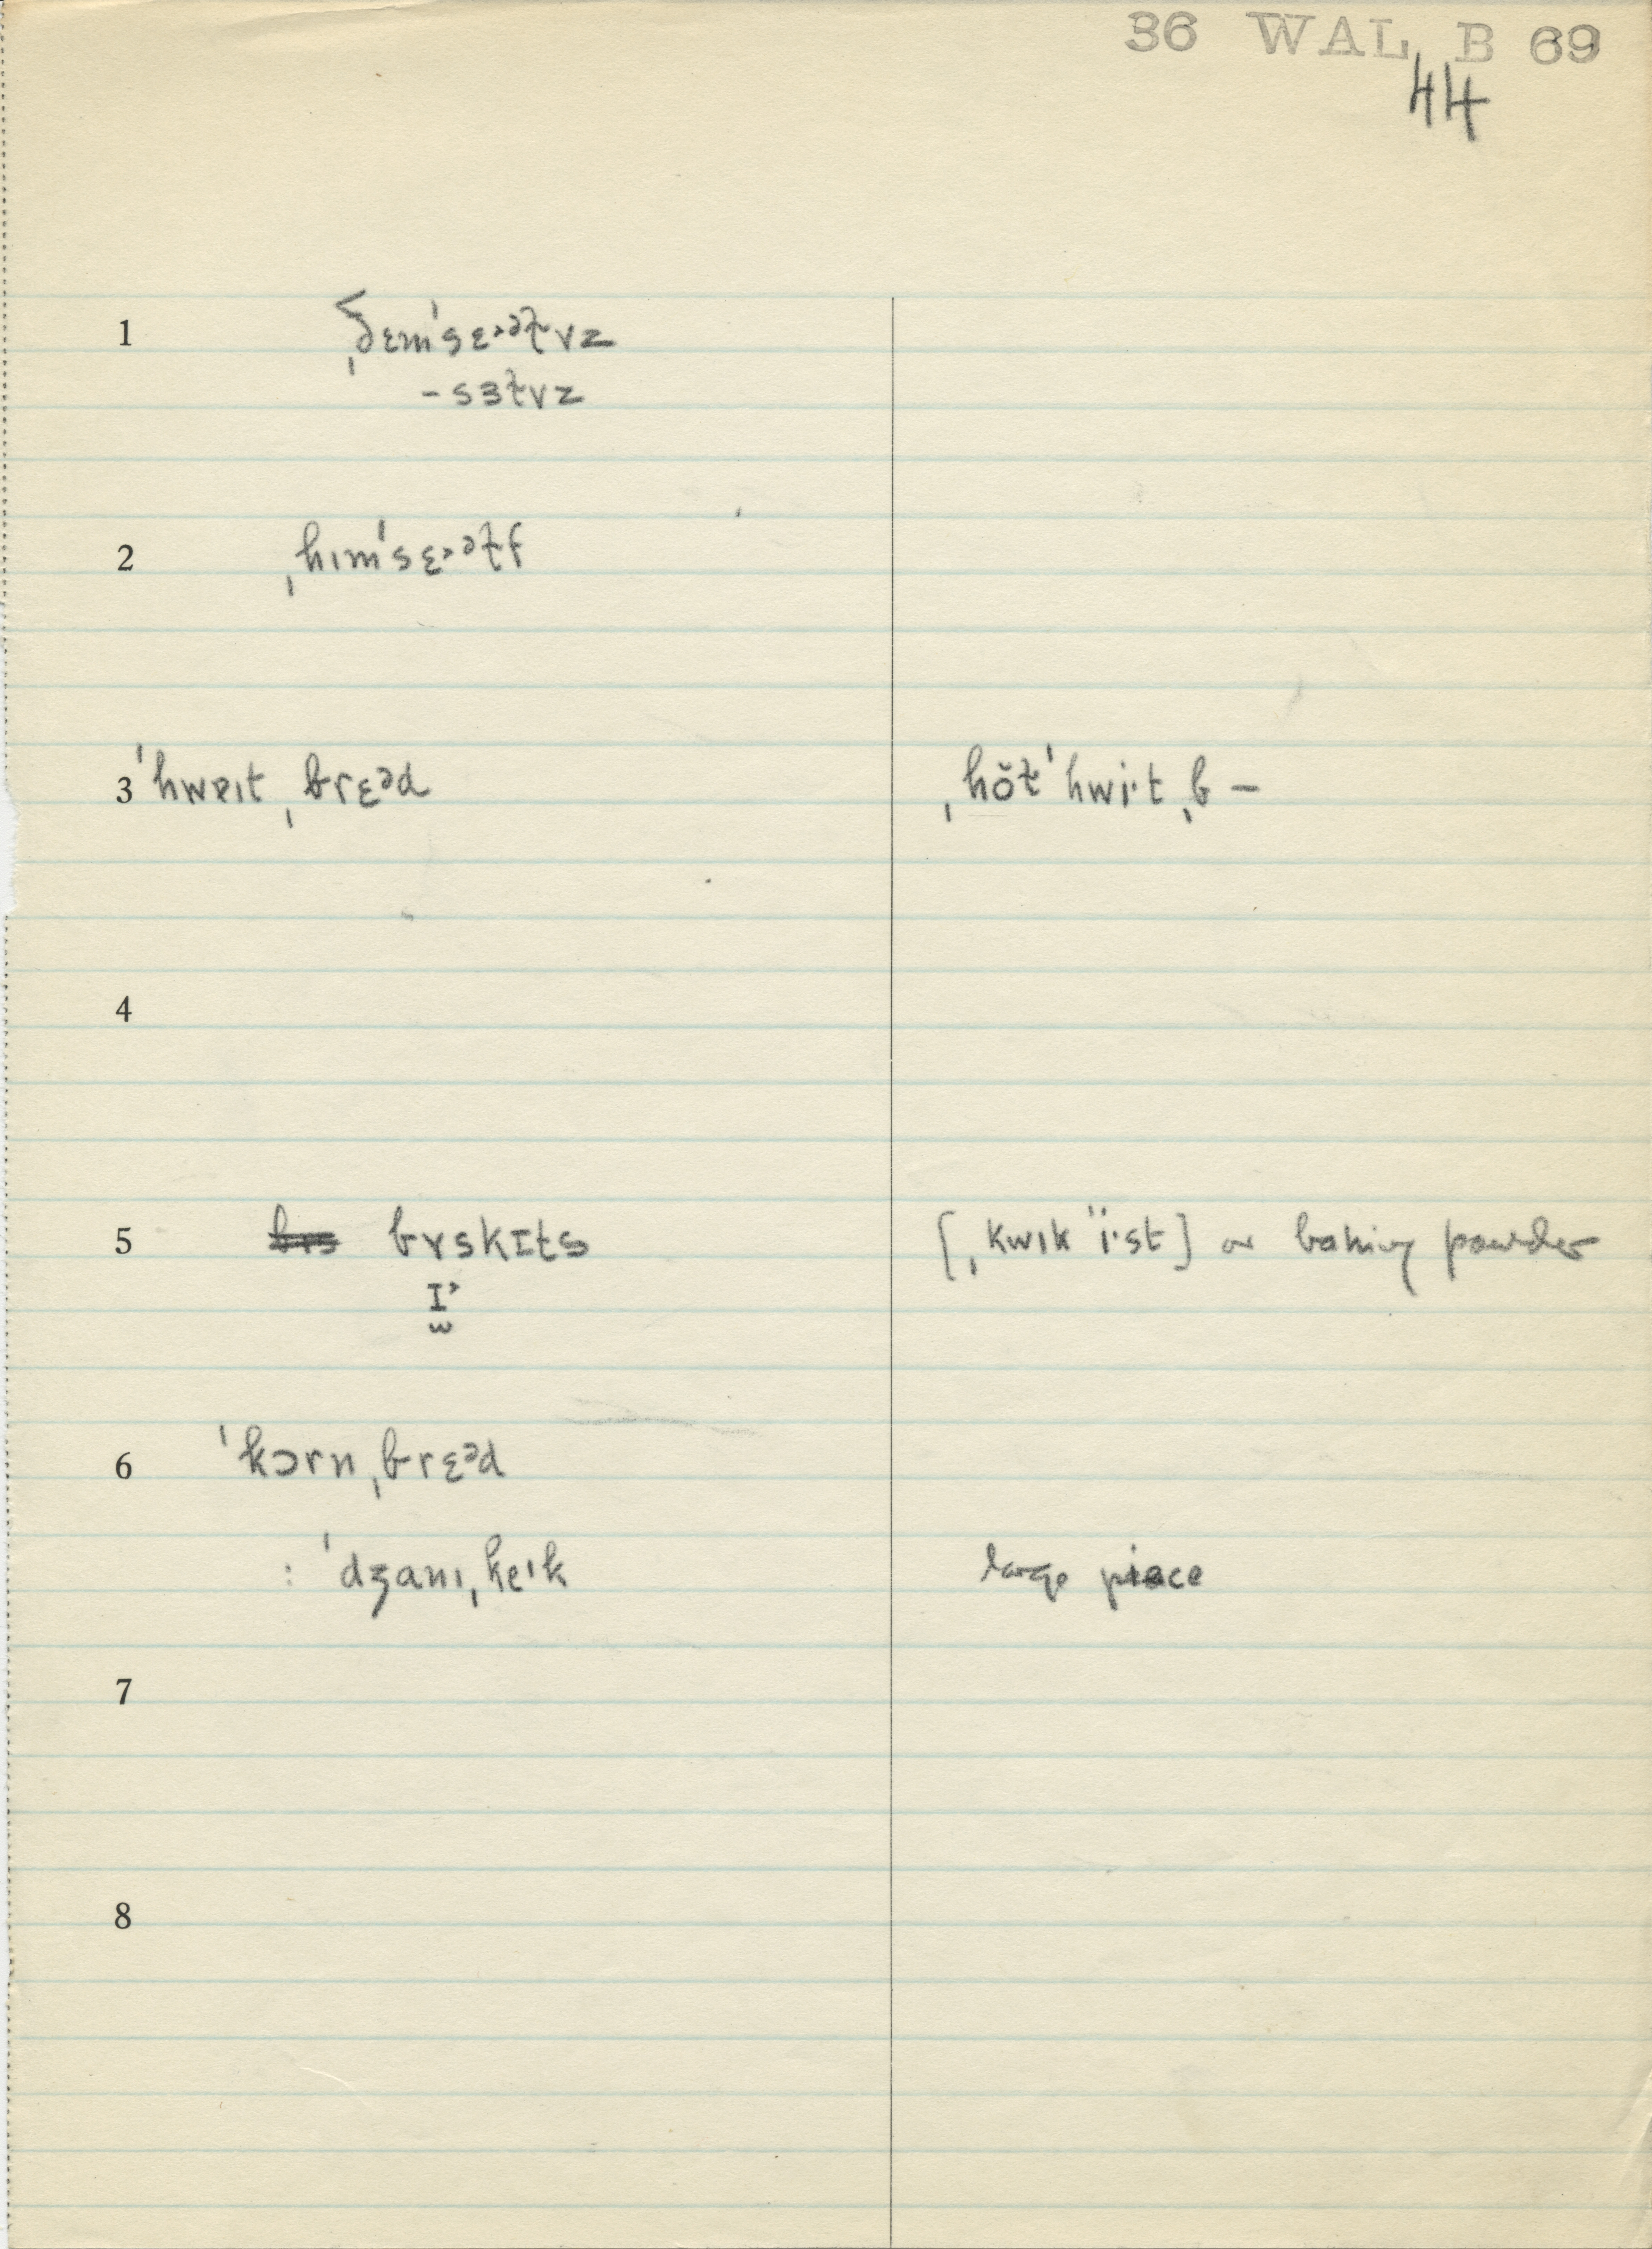 36 WAL B 69
44
1 ˌðɛmˈsɛ˃ᵊɫvz
-sɜɫvz
2 ˌhımˈsɛ˃ᵊɫf
3 ˈhwɐıt ˌbrɛᵊd ˌhŏɫˈhwi·t ˌb –
4
5 b̶r̶s̶ bɤskɪts [ˌkwık ˈï·st] or baking powder
ɪ˃
6 ˈkɔrn ˌbrɛᵊd
: ˈdʒanı ˌkeˈk large piece
7
8